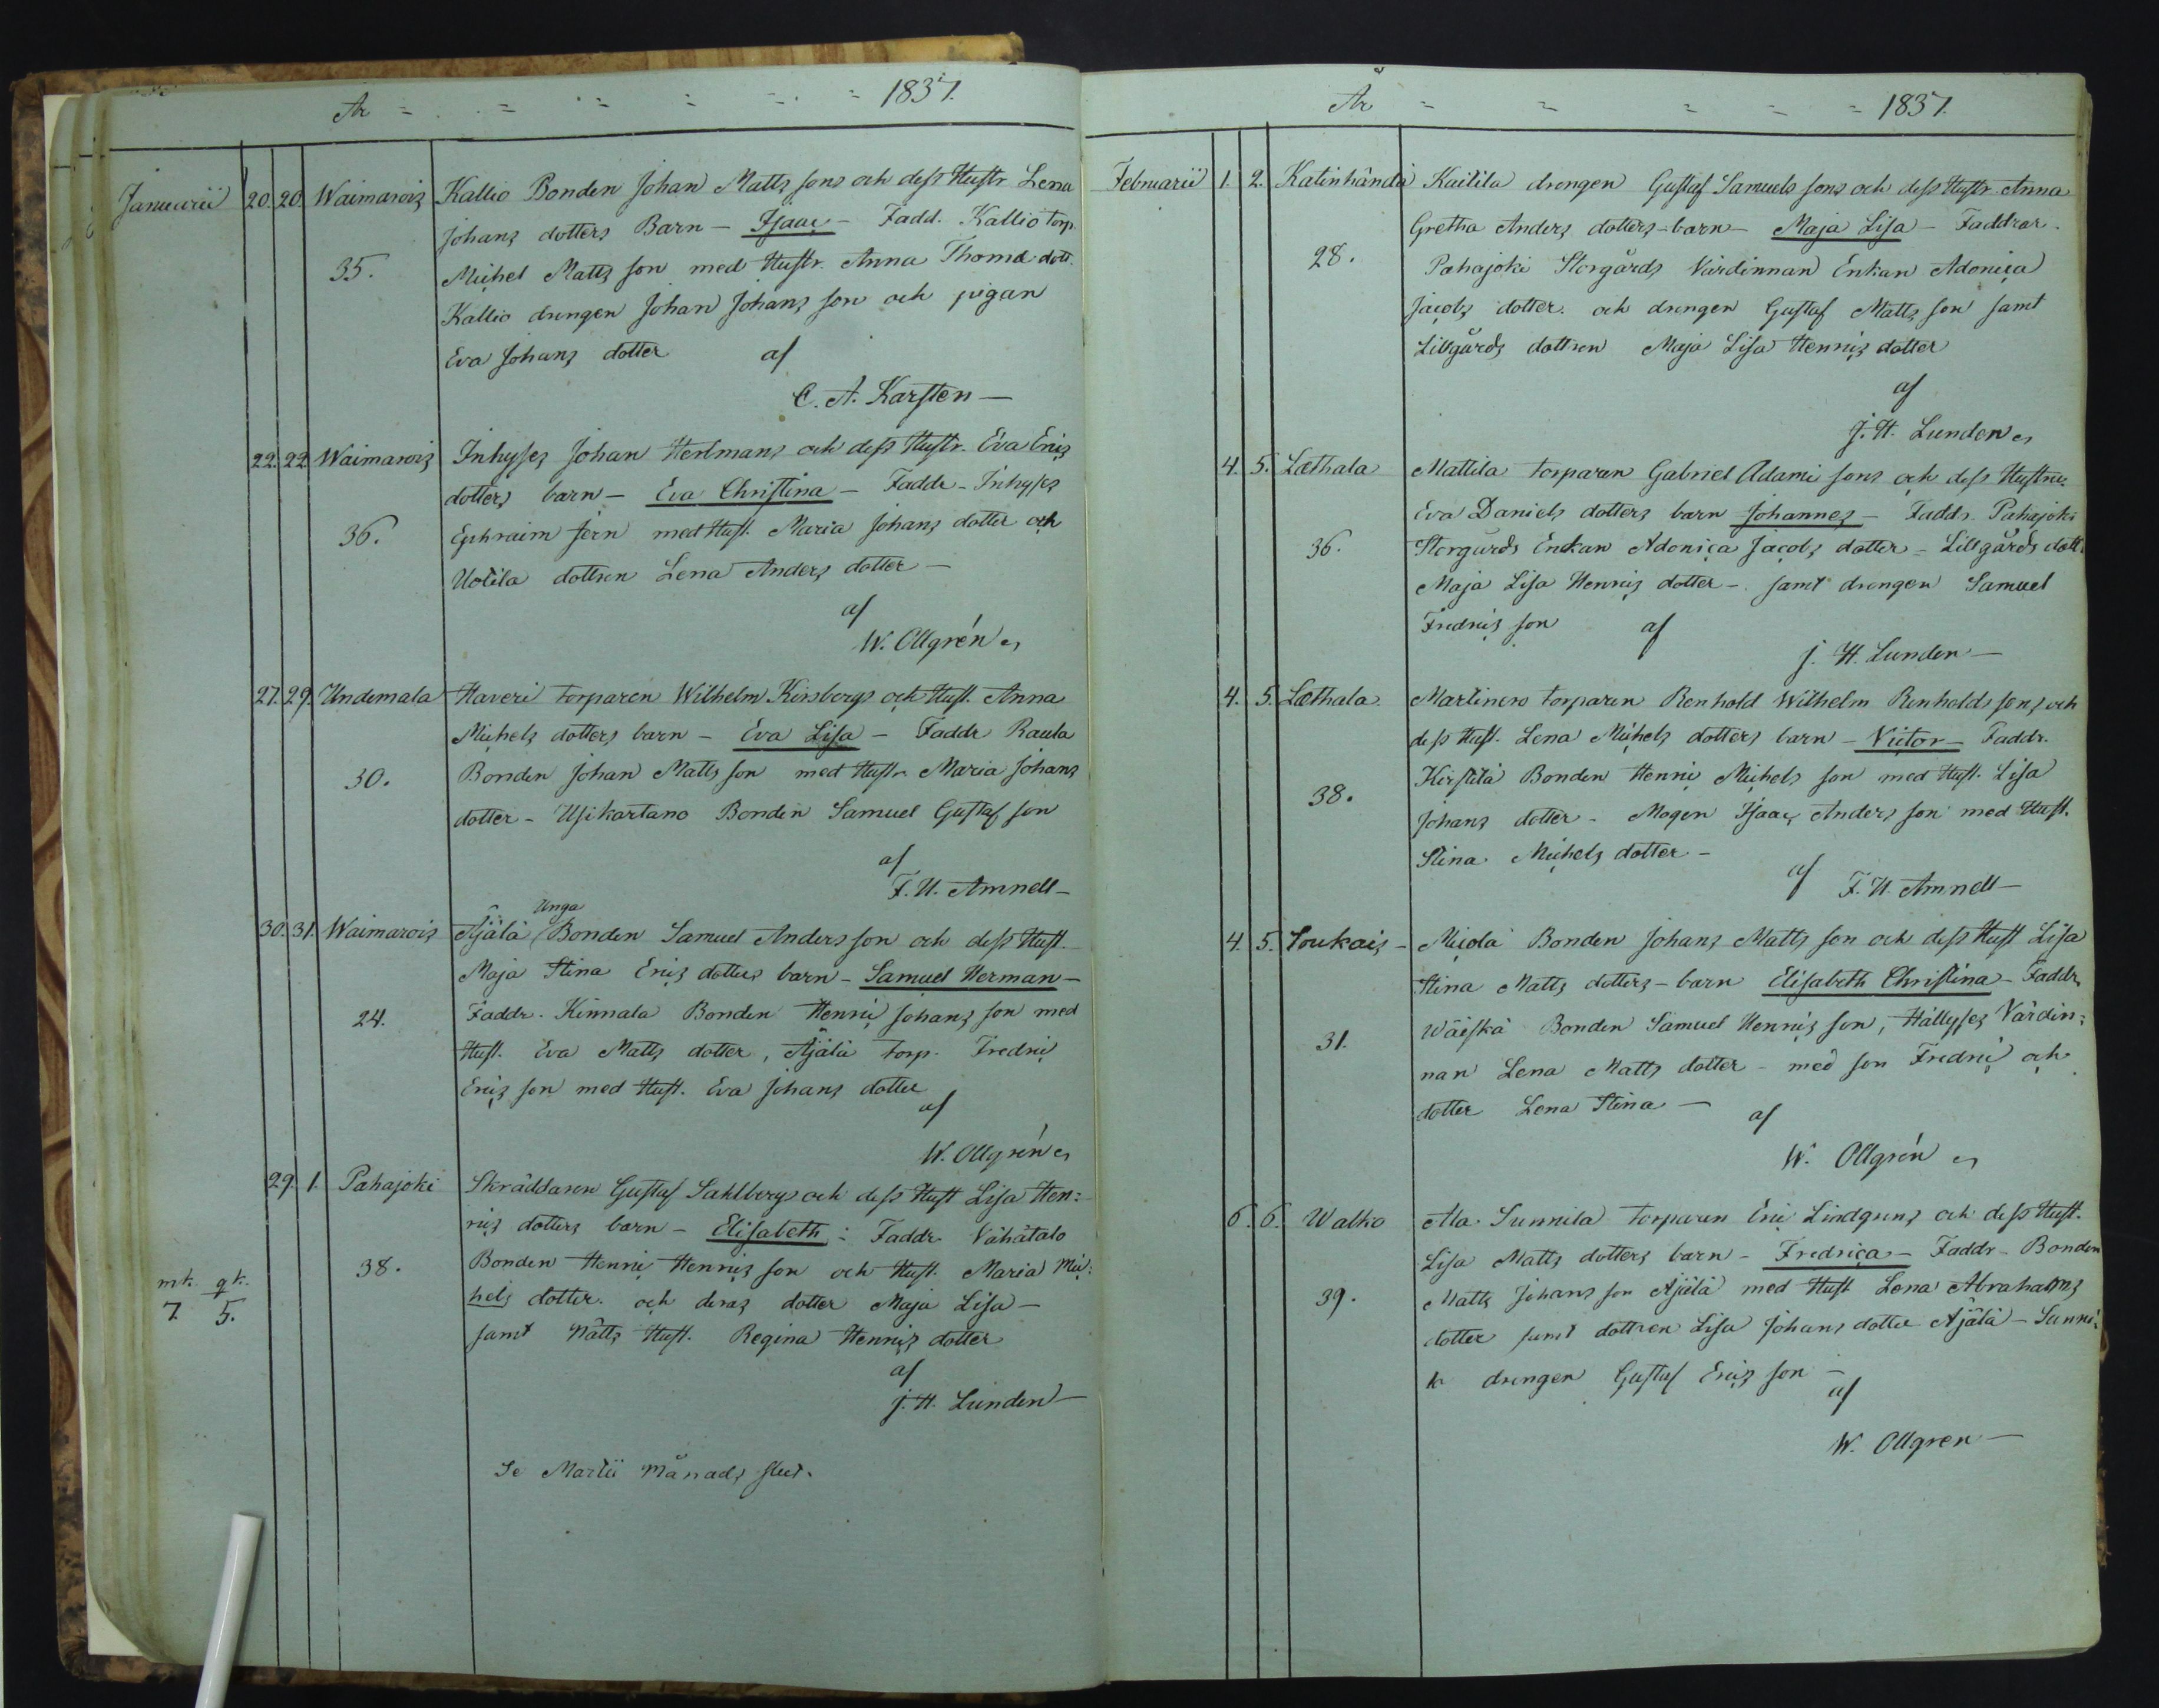 År = = = = = = 1837.
Januarii 20. 20. Waimarois Kallio Bonden Johan Matts sons och dess Hustr Lena
Johans dotters Barn – Isaac – Fadd. Kallio torp.
35. Michel Matts son med Hustr. Anna Thomæ dott.
Kallio drengen Johan Johans son och pigan
Eva Johans dotter af
C. A. Karsten –
22. 22 Waimarois Inhyses Johan Herlmans och dess Hustr. Eva Erics
dotters barn – Eva Christina – Faddr – Inhyses
36. Ephraim Jern med Hust. Maria Johans dotter och
Uotila dottren Lena Anders dotter –
af
W. Ollgrén
27. 29. Undemala Haveri torparen Wilhelm Kinsbergs och Hust. Anna
Michels dotters barn – Eva Lisa – Faddr Raula
30. Bonden Johan Matts son med Hustr. Maria Johans
dotter – Usikartano Bonden Samuel Gustaf son
af
F. U. Amnell –
30. 31. Waimarois Äjälä Unga Bonden Samuel Anders son och dess Hust.
Maja Stina Erics dotters barn – Samuel Herman –
24. Faddr. Kinnala Bonden Henric Johans son med
Hust. Eva Matts dotter, Äjälä torp. Fredric
Erics son med Hust. Eva Johans dotter
af
W. Ollgrén
29. 1. Pahajoki Skräddaren Gustaf Sahlbergs och dess Hust Lisa Hen:
rics dotters barn – Elisabeth : Faddr Vähätalo
38. Bonden Henric Henrics son och Hust. Maria Mic:
hels dotter. och deras dotter Maja Lisa –
mk. qk.
7. 5.
samt Matts Hust. Regina Henrics dotter
af
J. H. Lunden –
Se Martii Månads slut.
År = = = = = 1837.
Februarii 1. 2. Katinhändä Kaitila drengen Gustaf Samuels sons och dess Hustr. Anna
Gretha Anders dotters – barn – Maja Lisa – Faddrar.
28. Pahajoki Storgårds Värdinnan Enkan Adonica
Jacobs dotter. och drengen Gustaf Matts son samt
Lillgårds dottren Maja Lisa Henrics dotter
af
J. H. Lunden
4. 5. Læthala Mattila torparen Gabriel Adami sons och dess Hustru
Eva Daniels dotters barn Johannes – Faddr Pahajoki
36. Storgårds Enkan Adonica Jacobs dotter – Lillgårds dott.
Maja Lisa Henrics dotter – samt drengen Samuel
Fredrics son af
J. H. Lunden –
4. 5. Læthala. Martinen torparen Renhold Wilhelm Renholds sons och
dess Hust. Lena Michels dotters barn – Victor – Faddr.
38. Kirstilä Bonden Henric Michels son med Hust. Lisa
Johans dotter – Mogen Isaac Anders son med Hust.
Stina Michels dotter –
af F. U. Amnell –
4. 5. Soukais – Micola Bonden Johans Matts son och dess Hust Lisa
Stina Matts dotters – barn Elisabeth Christina – Faddr,
31. Wäiskä Bonden Samuel Henrics son, Hällyses Värdin:
nan Lena Matts dotter – med son Fredric och
dotter Lena Stina – af
W. Ollgrén
6. 6. Walko Ala Sunnila torparen Eric Lindgrens och dess Hust.
Lisa Matts dotters barn – Fredrica – Faddr – Bonden
39. Matts Johans son Äjälä med Hust Lena Abrahams
dotter samt dottren Lisa Johans dotter Äjälä – Sunni:
la drengen Gustaf Erics son –
af
W. Ollgren –